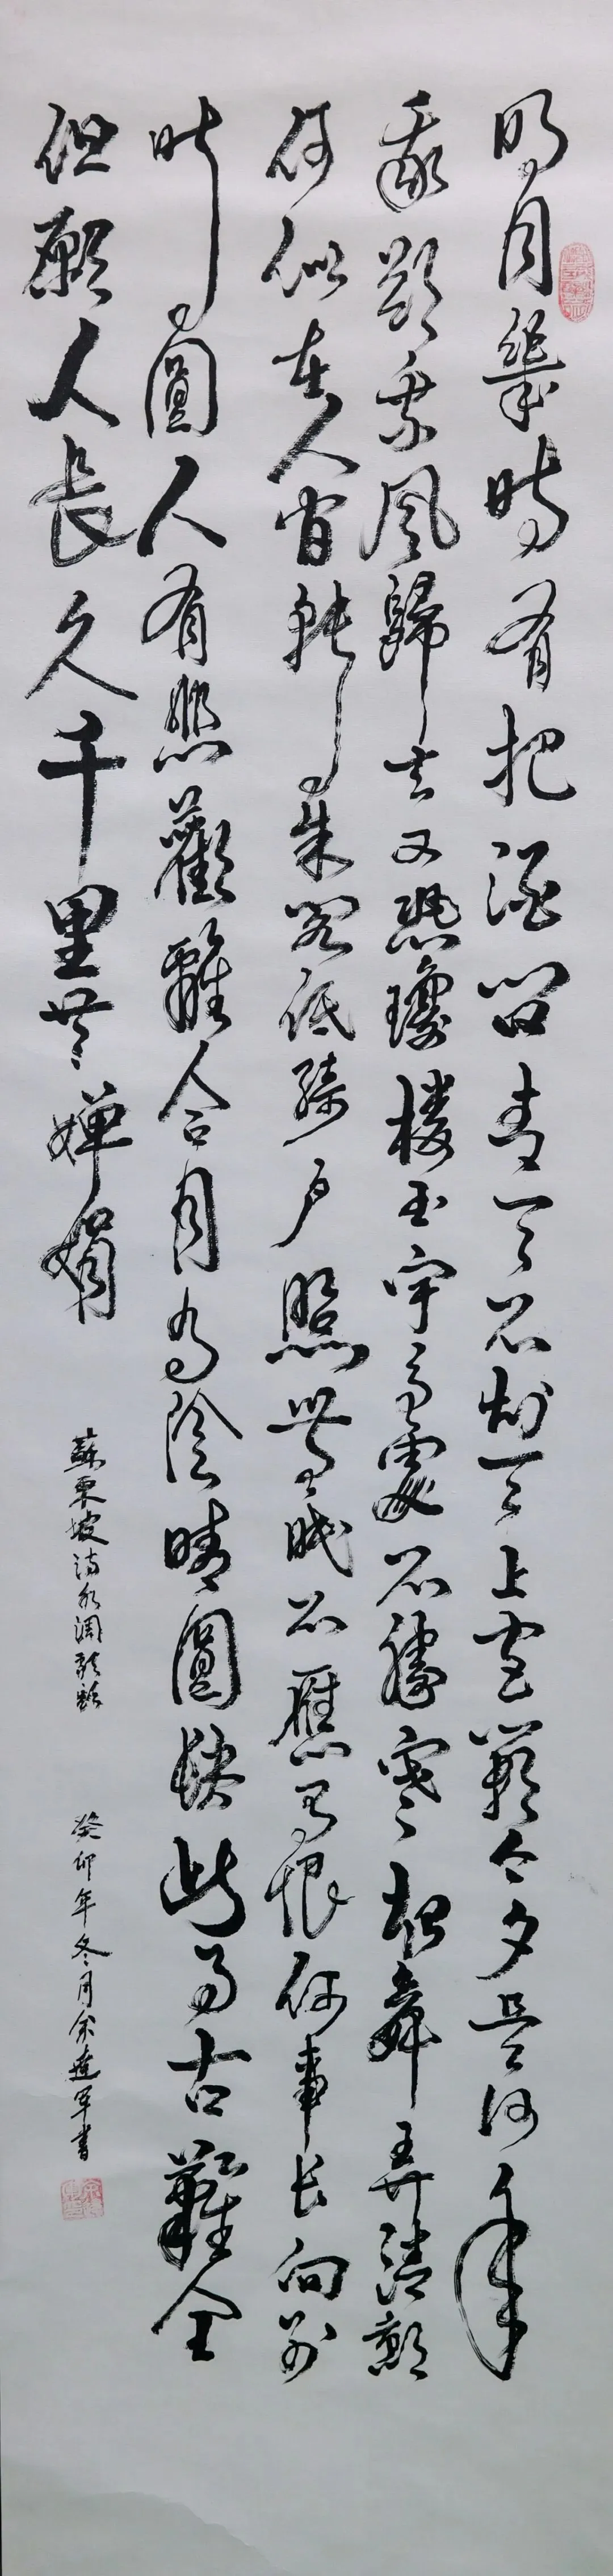 明月幾時有把酒問青天不知天上宮闕今夕是何年
我欲乘風歸去又恐瓊樓玉宇高處不勝寒起舞弄清影
何似在人間轉朱閣低綺戶照無眠不應有恨何事長向別
時圓人有悲歡離合月有陰晴圓缺此事古難全
但願人長久千里共嬋娟
蘇東坡詩水調歌頭
癸卯年冬月余軍書